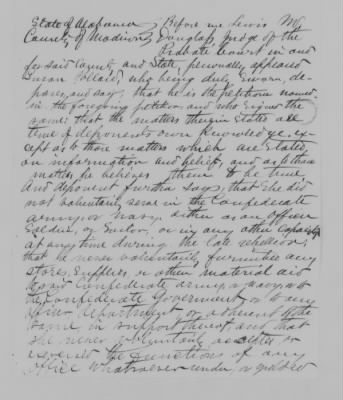 State of Alabama } Before me Lewis M
County of Madison } Douglass Judge of the
Probate Court in and
for said County and State, personally appeared
Susan Pollard, who being duly Sworn, de-
poses, and says that he is the petitioner named
in the foregoing petition and who signed the
same; that the matters therein States are
true of deponents own knowledge, ex-
cept as to those matters which are Stated
on information and belief, and as to those
matters he believes them to be true,
And deponent further says, that She did
not voluntarily serve in the Confederate
army, or navy either as an Officer
Soldier, or Sailor, or in any other Capacity
at any time during the late rebellion;
that he never voluntarily furnished any
stores, Supplies, or other material aid
to said Confederate army, or navy, or to
the Confederate Government, or to any
officer department, or adherent to the
same in support thereof, and that
She never voluntarily accepted or
exercised the functions of any
office whatsoever under, or yielded